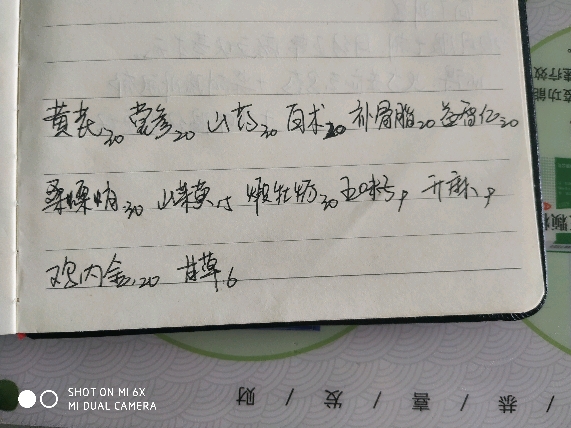 黄芪30 党参20 山药30 白术20 补骨脂20 益智仁20
桑螵蛸30 山茱萸15 煅牡蛎30 五味子9 升麻9
鸡内金20 甘草6
SHOT ON MI 6X
MI DUAL CAMERA
恭 / 喜 / 发 / 财